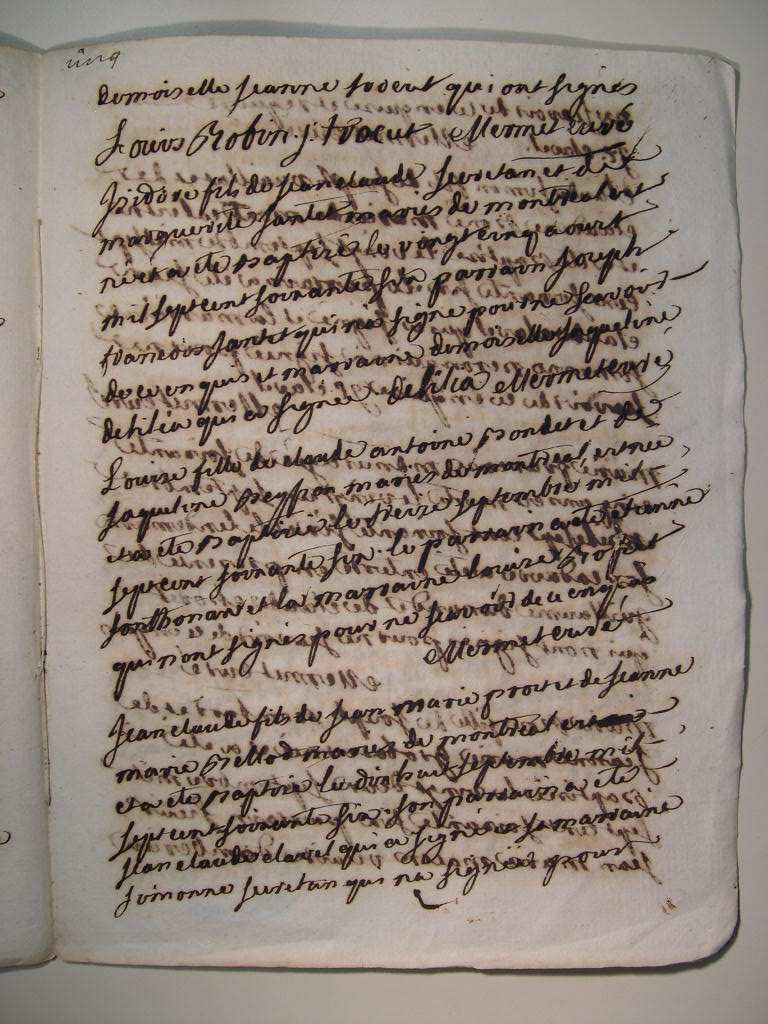 cinq
demoiselle Jeanne tvocut qui ont signes
Louis Robin j. tvocut Mermet curé
Isidore fils de Jean claude Secretan et de
marguerite Jantet mariés de montreal est
né et a été Baptisé le vingt cinq aoust
mil sept cent soixante six parrain Joseph
francois Jantet qui na signé pour ne scavoir
de ce enquis et marraine demoiselle Jaqueline
delilia qui a signé delilia Mermet curé
Louise fille de claude antoine Bondet et de
Jaqueline mariés de montreal est née
et a été Baptisée le treze septembre mil
sept cent soixante six le parrain a été étienne
Jonthonax et la marraine Louise
qui nont signés pour ne scavoir de ce enquis
Mermet curé
Jean claude fils de Jean marie prost et de Jeanne
marie Bellod mariés de montreal est né
et a été Baptisé le dix huit septembre mil
sept cent soixante six son parrain a été
Jean claude clavel qui a signé sa marraine
simonne secretan qui na signé pour